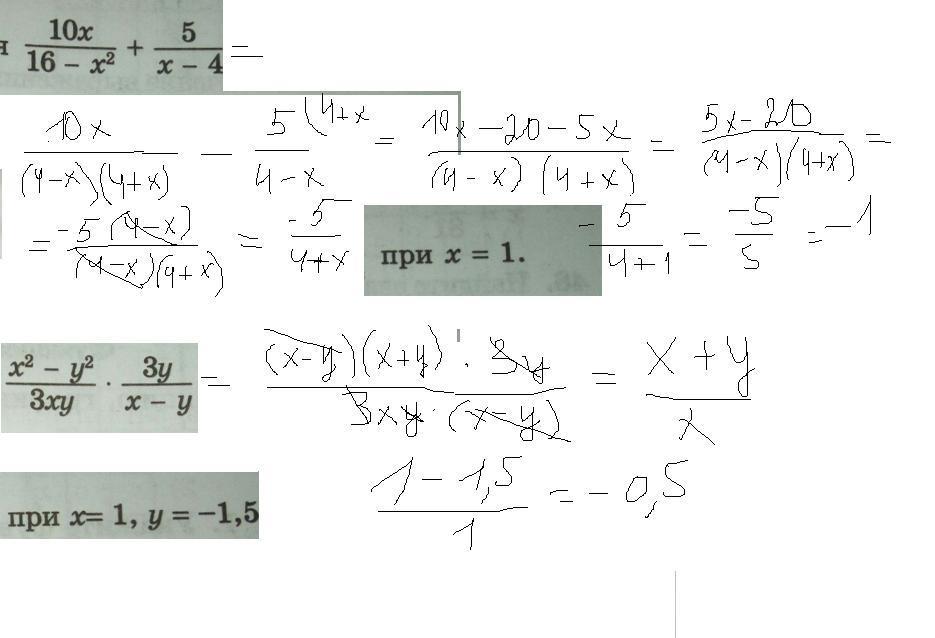 я 10x/(16 − x²) + 5/(x − 4) =
10x/((4-x)(4+x)) − 5(4+x/(4-x) = (10x-20-5x)/((4-x)(4+x)) = (5x-20)/((4-x)(4+x)) =
= -5(4-x)/((4-x)(4+x)) = -5/(4+x) при x = 1. -5/(4+1) = -5/5 = -1
(x² − y²)/(3xy) · 3y/(x − y) = ((x-y)(x+y) · 3y)/(3xy·(x-y)) = (x+y)/x
при x= 1, y = −1,5 (1-1,5)/1 = -0,5